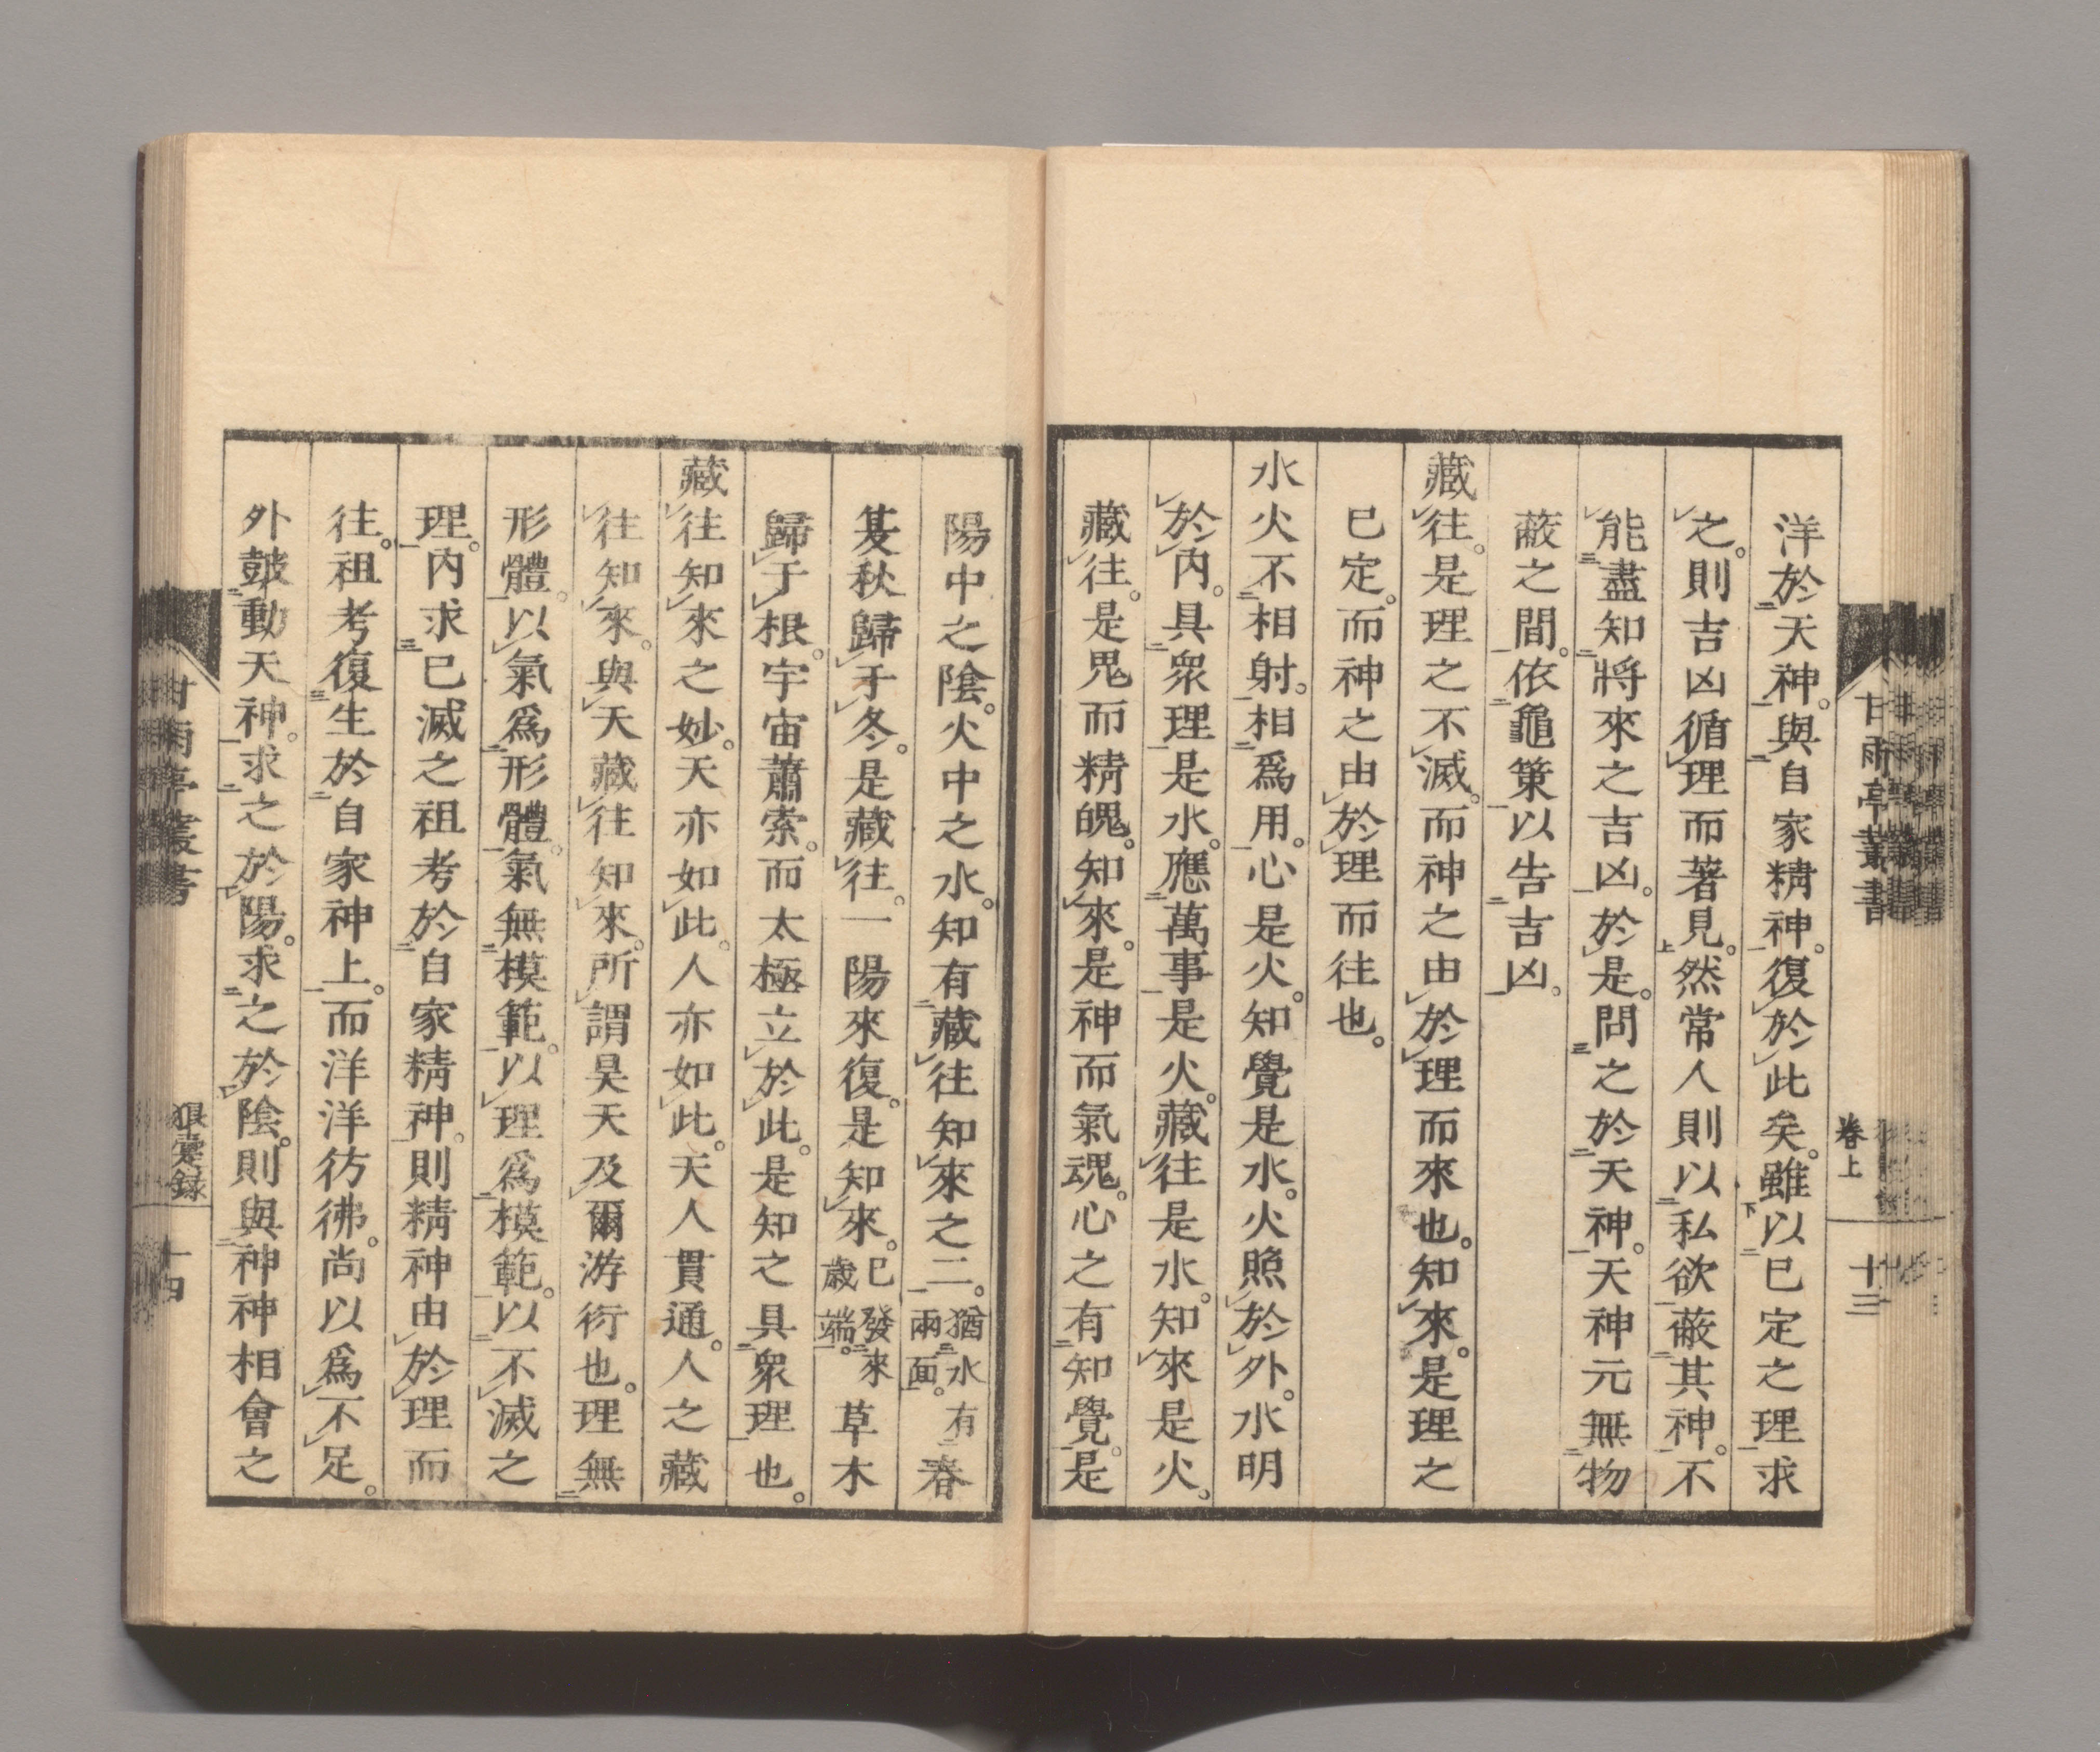 甘雨亭叢書
卷上
十三
洋於天神。與自家精神。復於此矣。雖以已定之理求
之。則吉凶循理而著見。然常人則以私欲蔽其神。不
能盡知將來之吉凶。於是。問之於天神。天神元無物
蔽之間。依龜筴以告吉凶。
藏往。是理之不滅。而神之由於理而來也。知來。是理之
已定。而神之由於理而往也。
水火不相射。相爲用。心是火。知覺是水。火照於外。水明
於內。具衆理是水。應萬事是火。藏往是水。知來是火。
藏往。是鬼而精魄。知來。是神而氣魂。心之有知覺。是
陽中之陰。火中之水。知有藏往知來之二。猶水有
兩面。春
夏秋歸于冬。是藏往。一陽來復。是知來。已發來
歲端。草木
歸于根。宇宙蕭索。而太極立於此。是知之具衆理也。
藏往知來之妙。天亦如此。人亦如此。天人貫通。人之藏
往知來。與天藏往知來。所謂昊天及爾游衍也。理無
形體。以氣爲形體。氣無模範。以理爲模範。以不滅之
理。內求已滅之祖考於自家精神。則精神由於理而
往。祖考復生於自家神上。而洋洋彷彿。尚以爲不足。
外鼓動天神。求之於陽。求之於陰。則與神神相會之
甘雨亭叢書
狼疐錄
十四